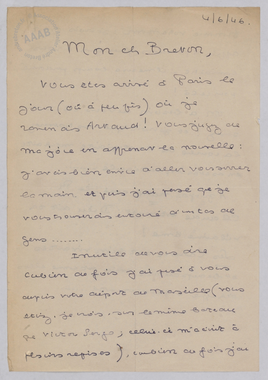 4/6/46.
AAAB
Mon ch Breton,
Vous êtes arrivé à Paris le
jour (où à peu près) où je
ramenais Artaud! Vous jugez de
ma joie en apprenant la nouvelle:
j'avais bien envie d'aller vous serrer
la main et puis j'ai pensé que je
vous trouverais entouré d'un tas de
gens ........
Inutile de vous dire
combien de fois j'ai pensé à vous
depuis votre départ de Marseille (vous
étiez, je crois, sur le même bateau
que Victor Serge, celui-ci m'écrit à
plusieurs reprises), combien de fois j'ai